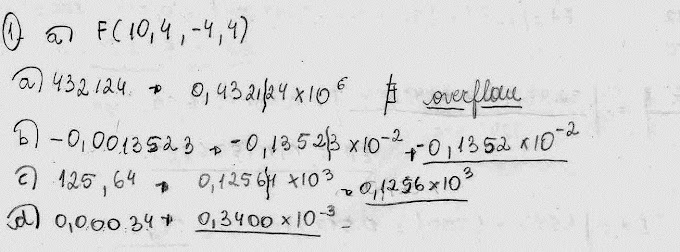 1. a) F(10,4,-4,4)
a) 432124 → 0,4321|24 × 10⁶ ∄ overflow
b) -0,0013523 → -0,1352|3 × 10⁻² → -0,1352 × 10⁻²
c) 125,64 → 0,1256|4 × 10³ = 0,1256 × 10³
d) 0,00034 → 0,3400 × 10⁻³